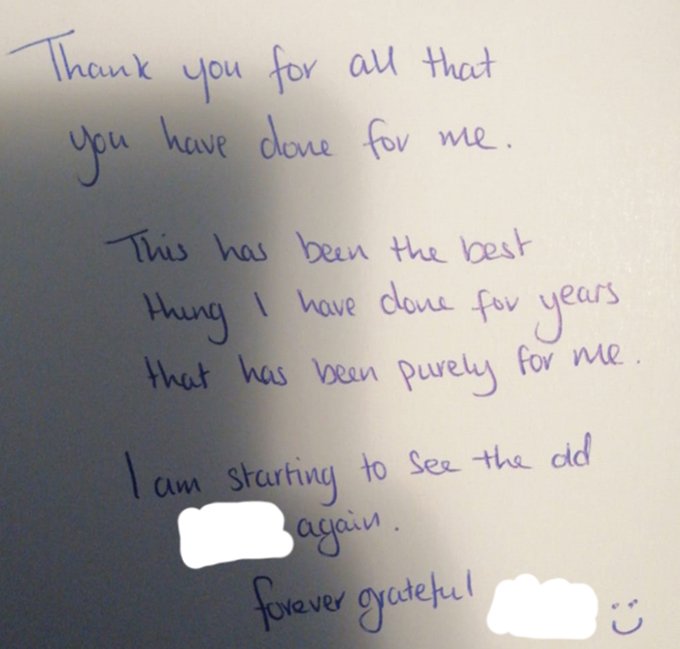 Thank you for all that
you have done for me.
This has been the best
thing I have done for years
that has been purely for me.
I am starting to see the old
again.
forever grateful